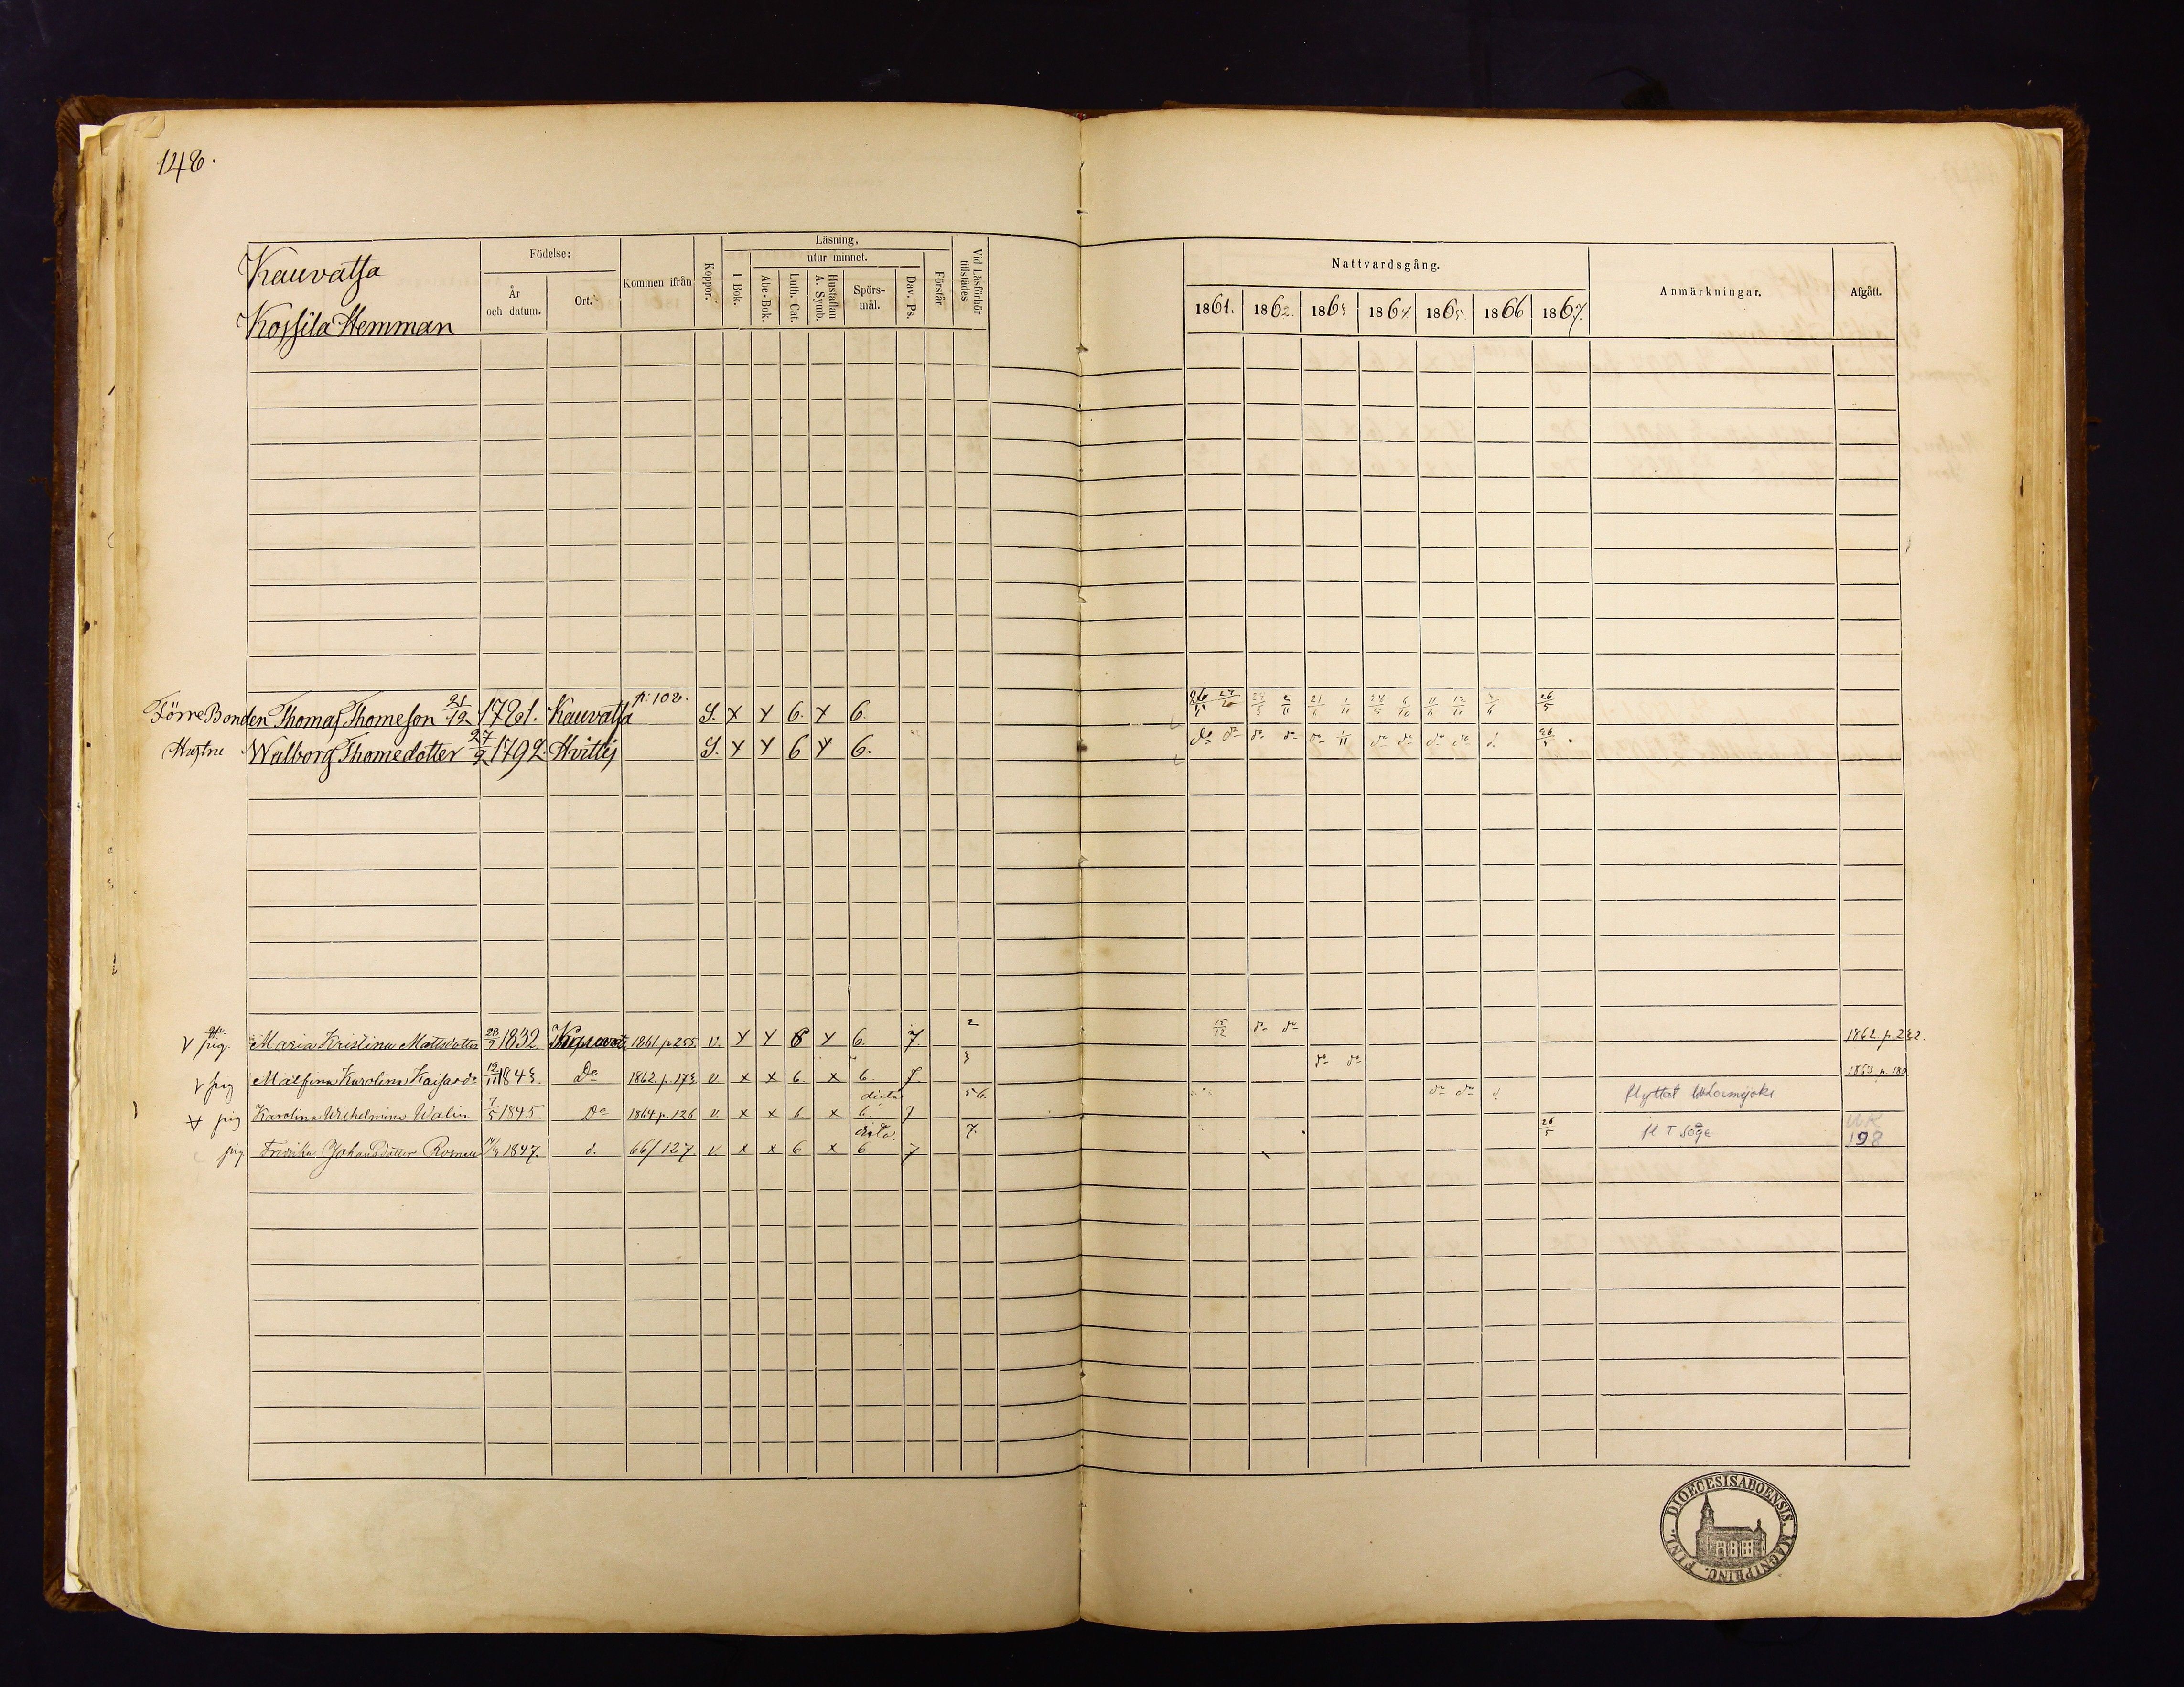 148.
Kauvatsa
Kossila Hemman
Födelse:
År och datum.
Ort.
Kommen ifrån
Koppor.
Läsning,
I Bok.
utur minnet.
Abc-Bok.
Luth. Cat.
Hustaflan A. Symb.
Spörs-mål.
Dav. Ps.
Förstår
Vid Läsförhör tillstädes
Nattvardsgång.
1861. 1862. 1863 1864 1865. 1866 1867.
Anmärkningar.
Afgått.
Förre Bonden Thomas Thomeson 21/12 1781. Kauvatsa p: 108. S. x x 6. x 6. 24/5 2/11 21/6 1/11 24/5 6/10 11/6 12/11 26/5
Hustru Walborg Thomedotter 27/9 1792. Hvittis S. x x 6 x 6. do do do do do 1/11 do do do do d. 26/5
pig. Maria Kristina Mattsdotter 28/2 1832 1861 p. 255 v. x x 6 x 6. 7. 2 15/12 do do 1862. p. 232.
pig Karolina Kaisard: 12/11 1843. Do 1862. p. 173. v x x 6. x 6. 7. 3 do do 1863 p. 180
pig Karolina Wilhelmina Walin 7/5 1845 Do 1864 p. 126 v. x x 6 x 6. 7 56. do do d. flyttat till Loimijoki
pig Fredrika Johansdotter 1847. d. 66/127 v x x 6 x 6 7 7. 26/5 fl T 198
DIOECESIS ABOENSIS. MAGNI PRINC. FINL.